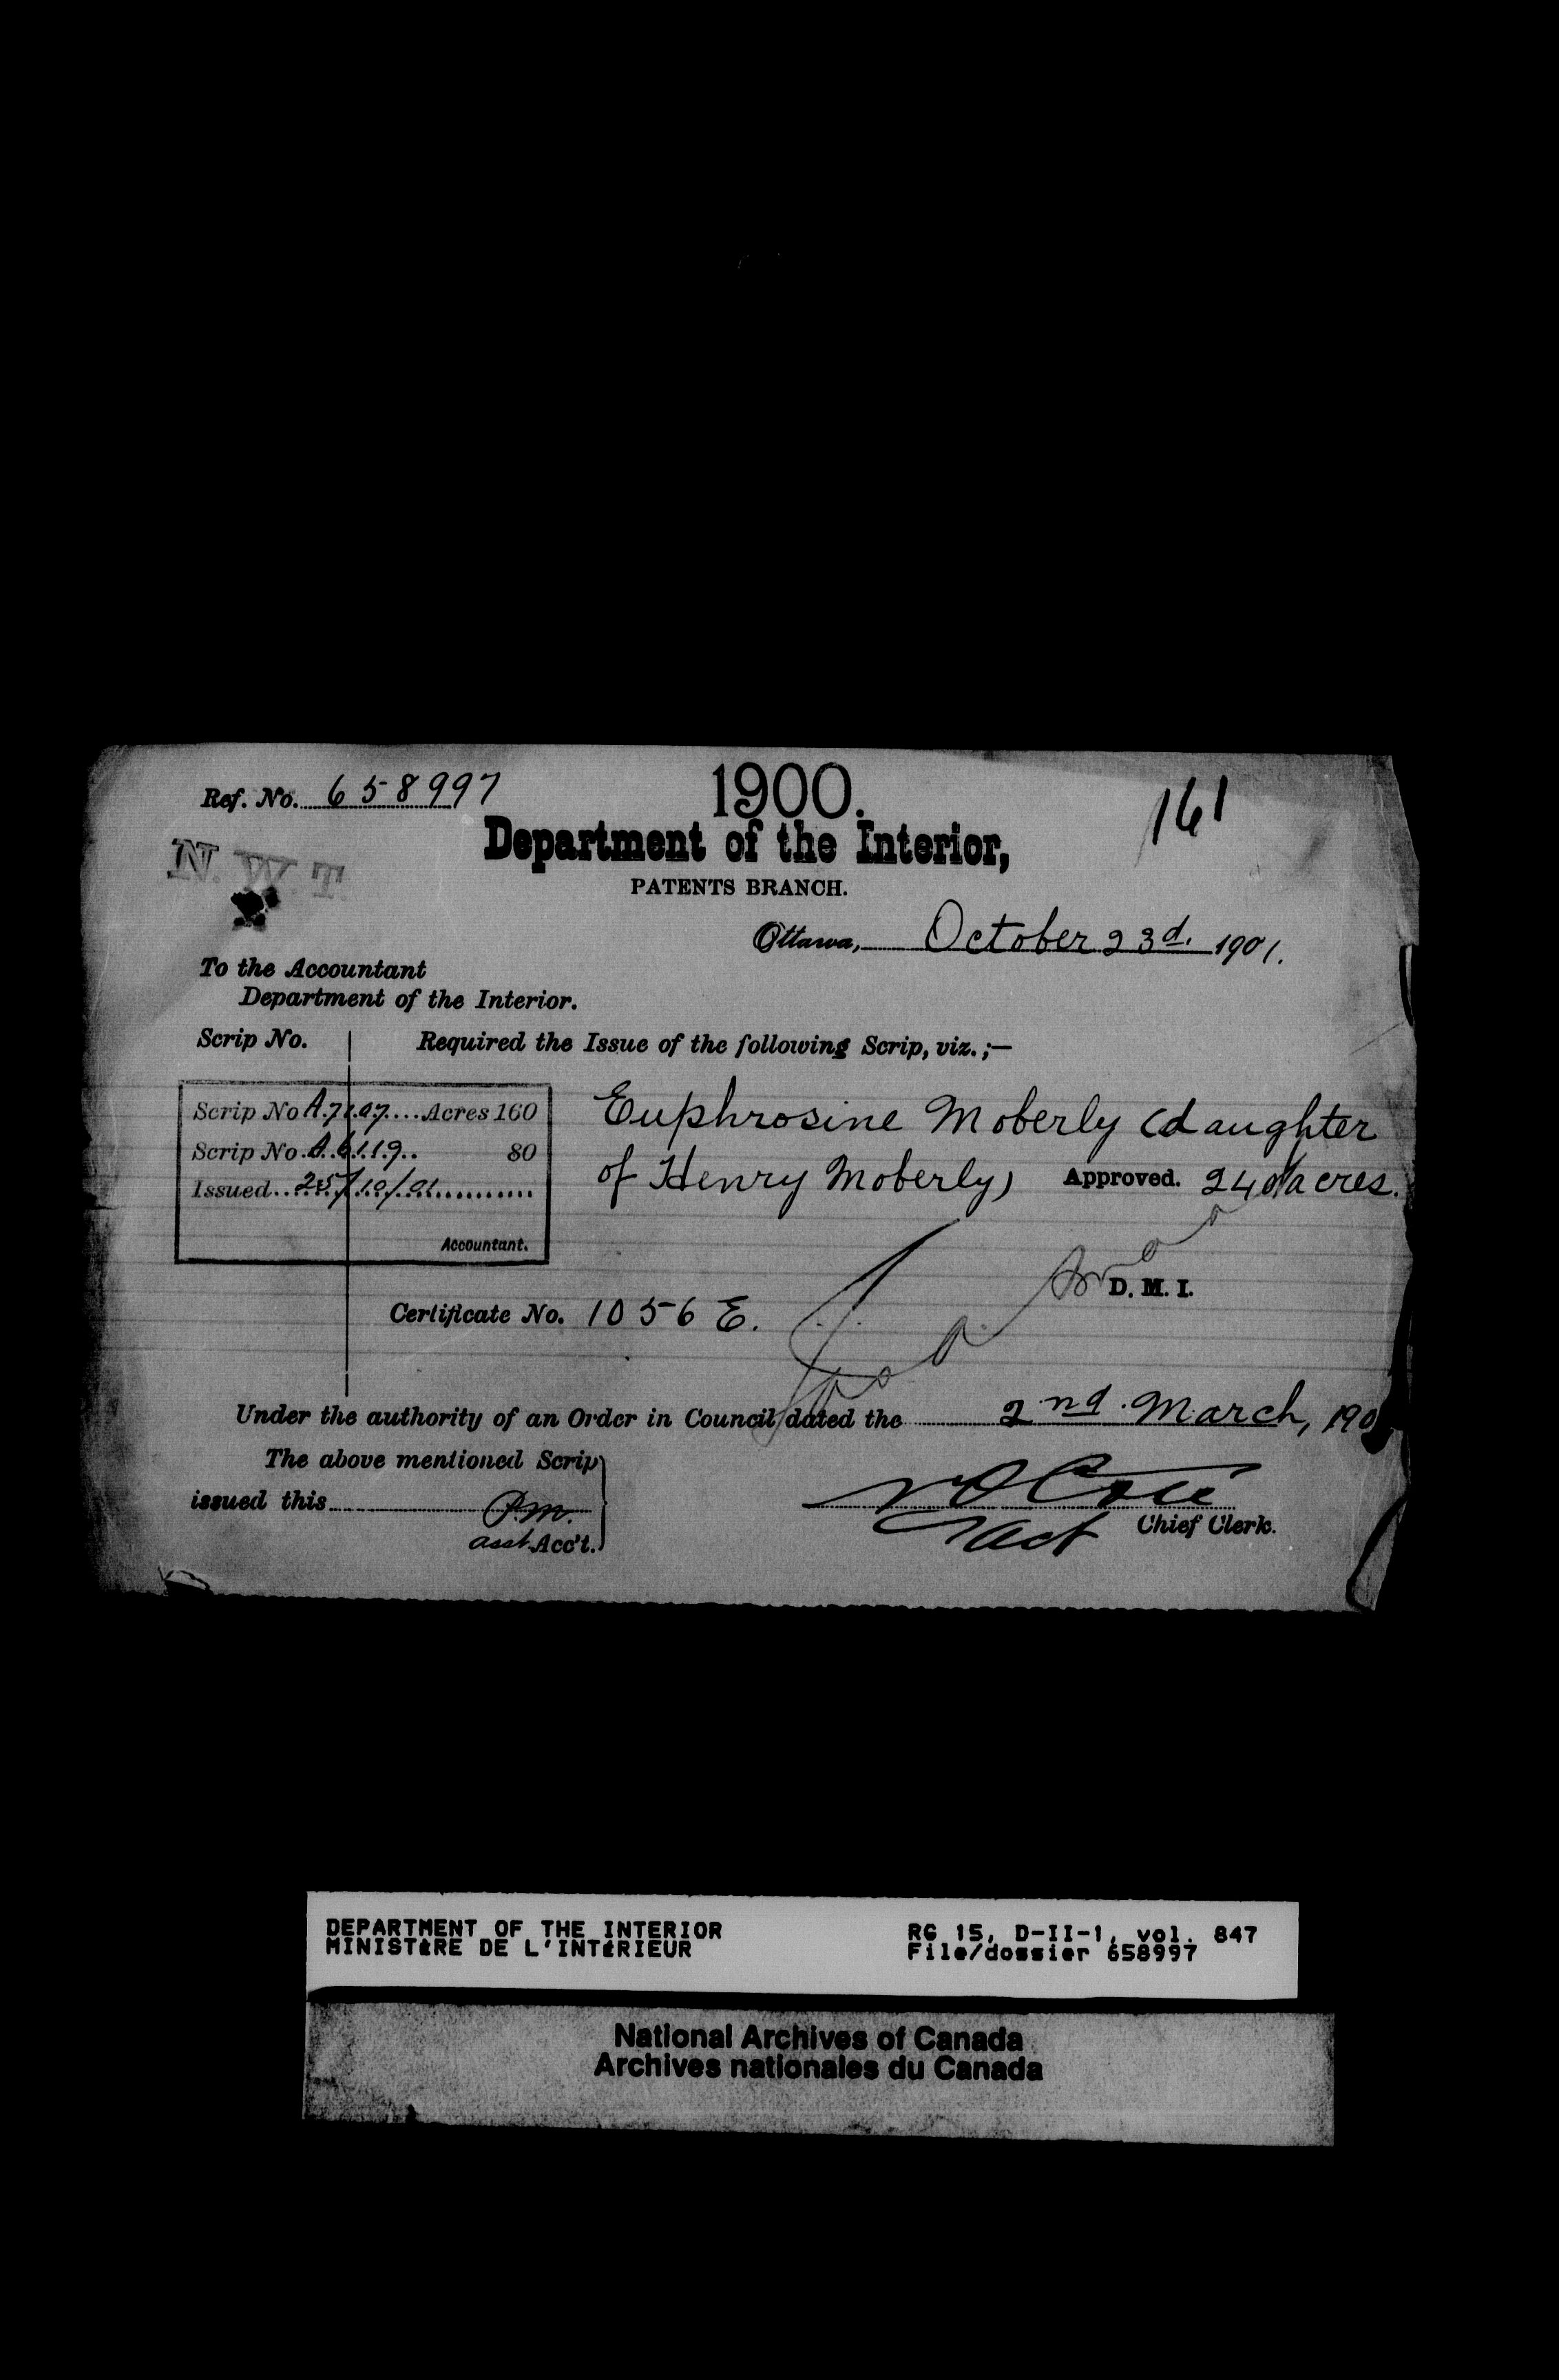 Ref. No. 658997
1900.
161
Department of the Interior,
N. W. T.
PATENTS BRANCH.
Ottawa, October 23d. 1901.
To the Accountant
Department of the Interior.
Scrip No. Required the Issue of the following Scrip, viz.;—
Scrip No A.7107....Acres 160
Scrip No. A.6119.. 80
Issued..25/10/01
Accountant.
Euphrosine Moberly (daughter
of Henry Moberly) Approved. 240 acres.
D. M. I.
Certificate No. 1056 E.
Under the authority of an Order in Council dated the 2nd. March, 190
The above mentioned Scrip
issued this P.M.
asst Acc't.
Act Chief Clerk.
DEPARTMENT OF THE INTERIOR RG 15, D-II-1, vol. 847
MINISTÈRE DE L'INTÉRIEUR File/dossier 658997
National Archives of Canada
Archives nationales du Canada